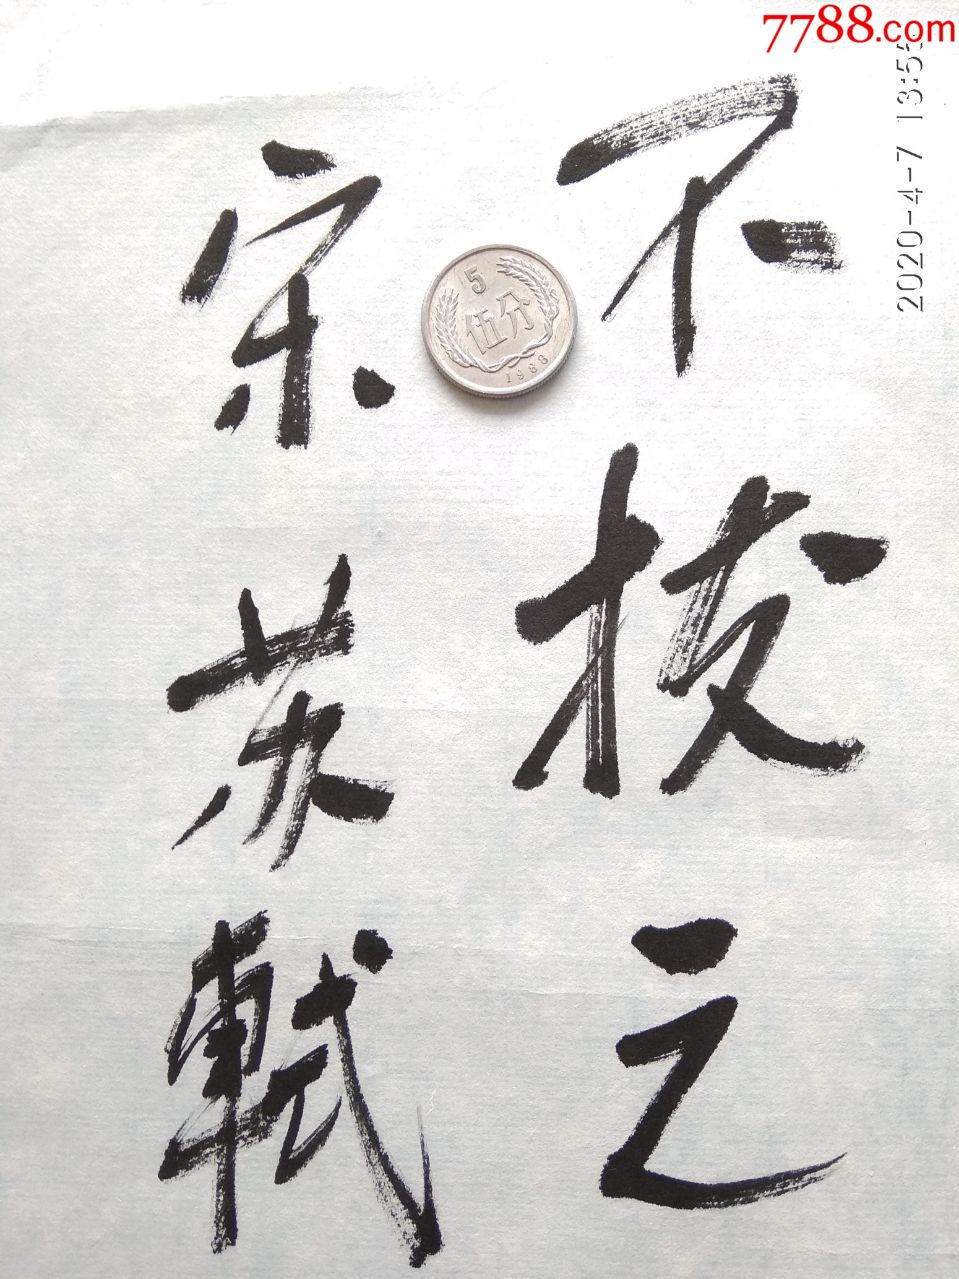 7788.com
2020-4-7 13:55
不拔之
宋苏軾
5
伍分
1983